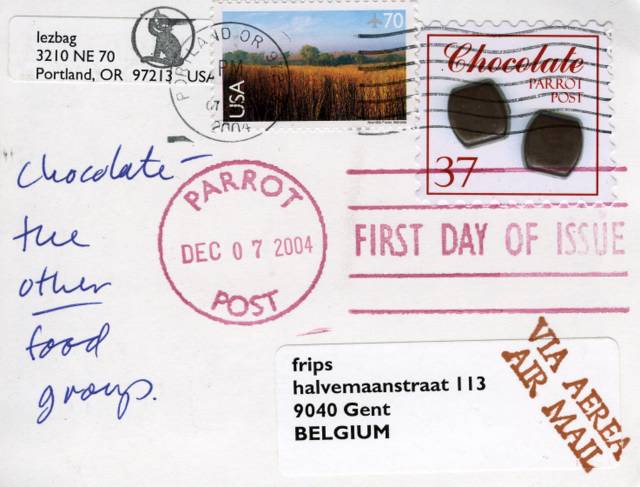 lezbag
3210 NE 70
Portland, OR 97213 USA
PORTLAND OR
PM
07
2004
70
USA
Chocolate
PARROT
POST
37
chocolate—
the
other
food
group.
PARROT
DEC 07 2004
POST
FIRST DAY OF ISSUE
frips
halvemaanstraat 113
9040 Gent
BELGIUM
VIA AEREA
AIR MAIL